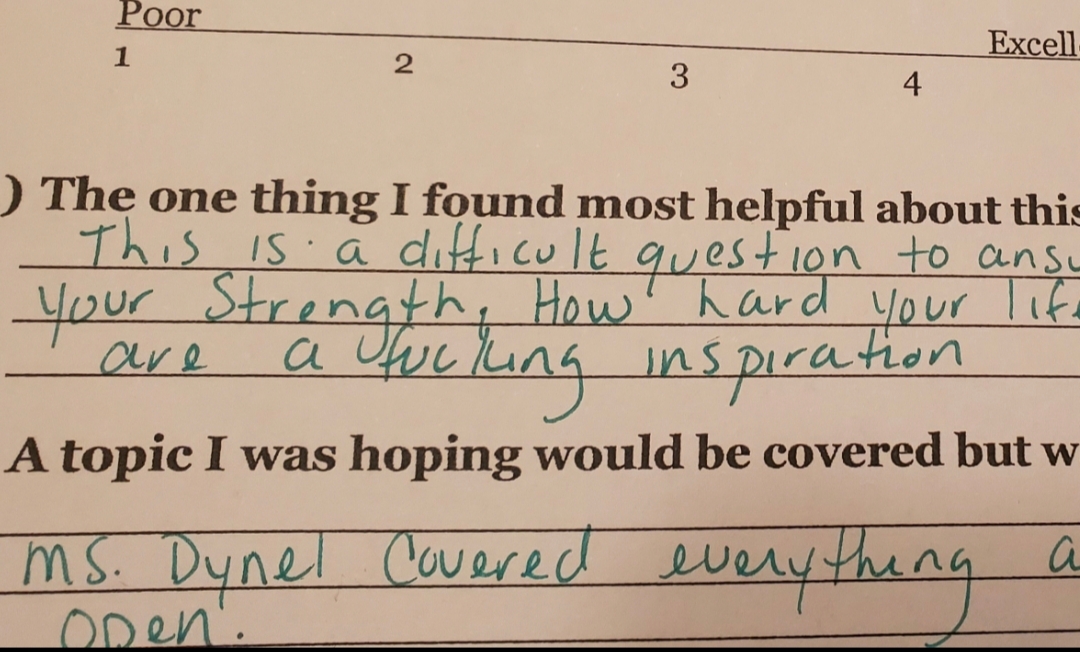 Poor Excell
1 2 3 4
) The one thing I found most helpful about this
This is a difficult question to ansu
your Strength, How hard your life
are a fucking inspiration
A topic I was hoping would be covered but w
Ms. Dynel Covered everything a
open.